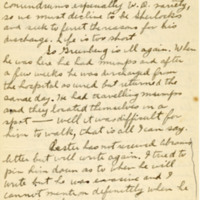 conundrums especially W. D. variety,
so we must decline to be Sherlocks
and seek to ferret the reasons for his
discharge. Life is too short.
So Greenberg is ill again. When
he was here he had mumps and after
a few weeks he was discharged from
the hospital as cured but returned the
same day. He had travelling mumps
and they located themselves in a
spot — Well it was difficult for
him to walk, that is all I can say.
Lester has not received
letter but will write again. I tried to
pin him down as to when he will
write but he was evasive and I
cannot mention definitely when he